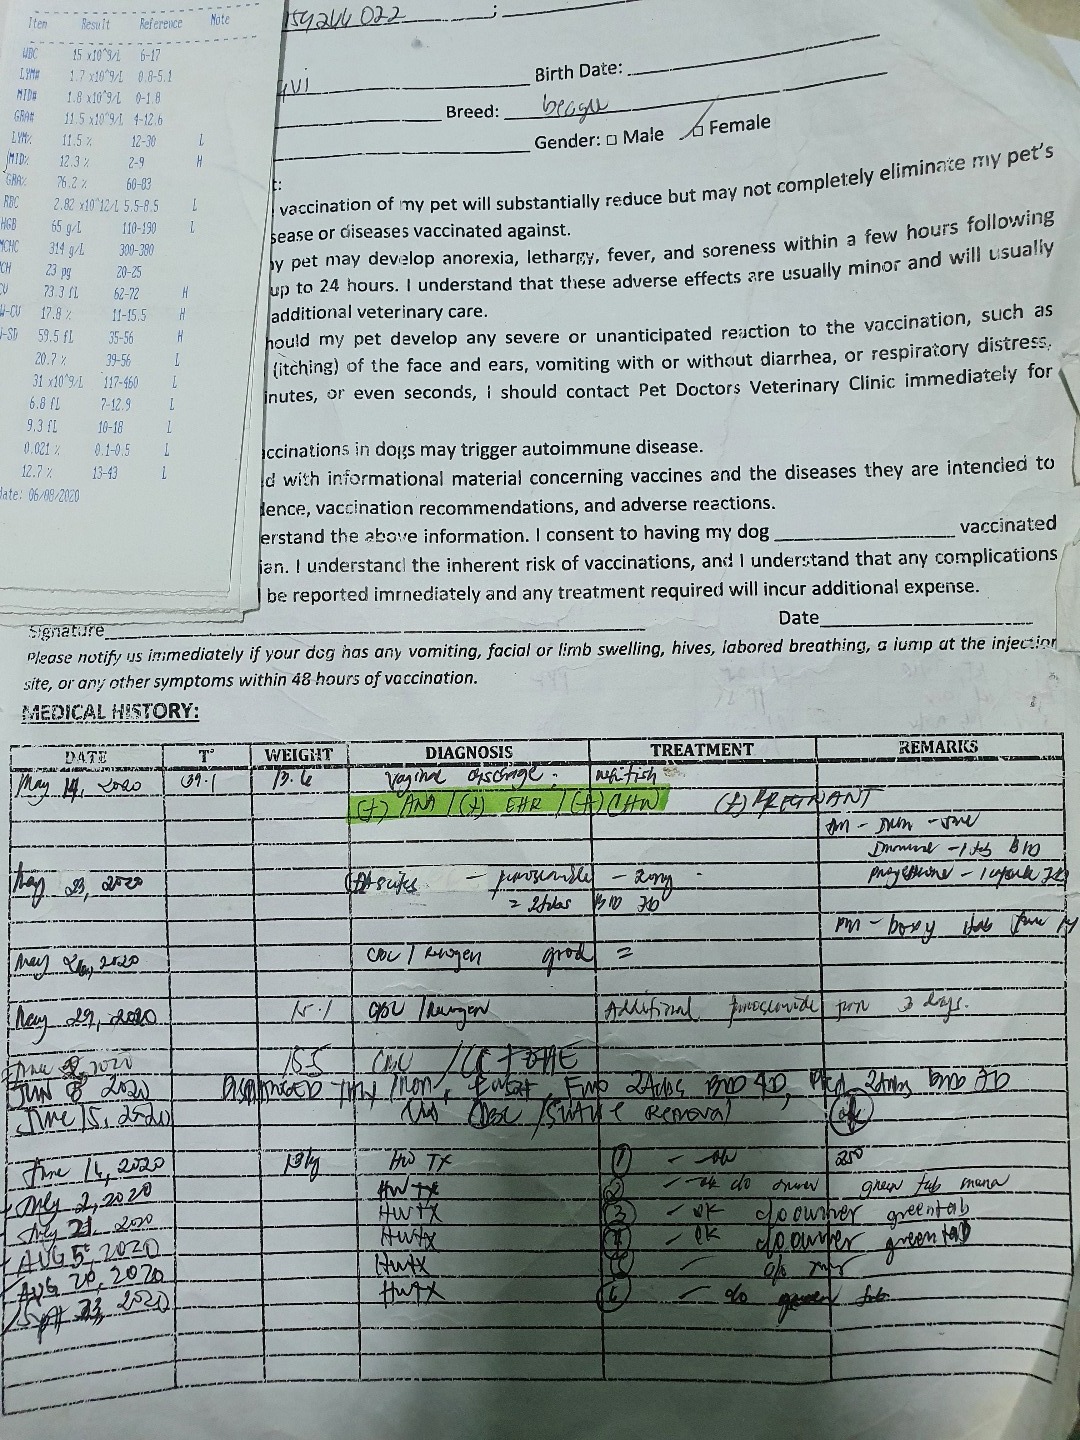 Item Result Reference Note
WBC 15 x10^9/L 6-17
LYM# 1.7 x10^9/L 0.8-5.1
MID# 1.8 x10^9/L 0-1.8
GRA# 11.5 x10^9/L 4-12.6
LYM% 11.5 % 12-30 L
MID% 12.3 % 2-9 H
GRA% 76.2 % 60-83
RBC 2.82 x10^12/L 5.5-8.5 L
HGB 65 g/L 110-190 L
MCHC 314 g/L 300-380
CH 23 pg 20-25
CV 73.3 fL 62-72 H
W-CV 17.8 % 11-15.5 H
-SD 59.5 fL 35-56 H
20.7 % 39-56 L
31 x10^9/L 117-460 L
6.8 fL 7-12.9 L
9.3 fL 10-18 L
0.021 % 0.1-0.5 L
12.7 % 13-43 L
date: 06/08/2020
022
Birth Date:
Breed: beagle
Gender: □ Male □ Female
t:
vaccination of my pet will substantially reduce but may not completely eliminate my pet's
sease or diseases vaccinated against.
y pet may develop anorexia, lethargy, fever, and soreness within a few hours following
up to 24 hours. I understand that these adverse effects are usually minor and will usually
additional veterinary care.
hould my pet develop any severe or unanticipated reaction to the vaccination, such as
(itching) of the face and ears, vomiting with or without diarrhea, or respiratory distress,
inutes, or even seconds, I should contact Pet Doctors Veterinary Clinic immediately for
ccinations in dogs may trigger autoimmune disease.
d with informational material concerning vaccines and the diseases they are intended to
dence, vaccination recommendations, and adverse reactions.
erstand the above information. I consent to having my dog vaccinated
ian. I understand the inherent risk of vaccinations, and I understand that any complications
be reported immediately and any treatment required will incur additional expense.
Signature Date
Please notify us immediately if your dog has any vomiting, facial or limb swelling, hives, labored breathing, a lump at the injection
site, or any other symptoms within 48 hours of vaccination.
MEDICAL HISTORY:
DATE T° WEIGHT DIAGNOSIS TREATMENT REMARKS
May 14, 2020 39.1 13.6 Vaginal discharge. whitish
(+) ANA / (+) EHR / (+) CHW (+) PREGNANT
Immune - 1 tab BID
May 23, 2020 - furosemide - 20mg
= 2tabs BID 7D
May 2020 CBC / good =
May 29, 2020 15.1 CBC / Additional furosemide for 3 days.
June 2020 15.5 CBC /
JUN 8 2020 2tabs BID 4D, 2tabs BID 7D
June 15, 2020 CBC / Suture Removal ok
June 16, 2020 13kg HW TX 1 - ok
July 2, 2020 HW TX 2 - ok c/o owner green tab
July 21, 2020 HWTX 3 - ok c/o owner greentab
AUG 5, 2020 HWTX 4 - ok c/o owner greentab
AUG 20, 2020 HWTX 5 - c/o
Sept 23, 2020 HWTX 6 - c/o tab